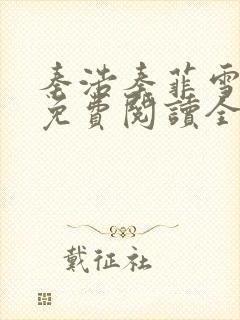 秦浩秦菲雪
免費閱讀全
戴征社